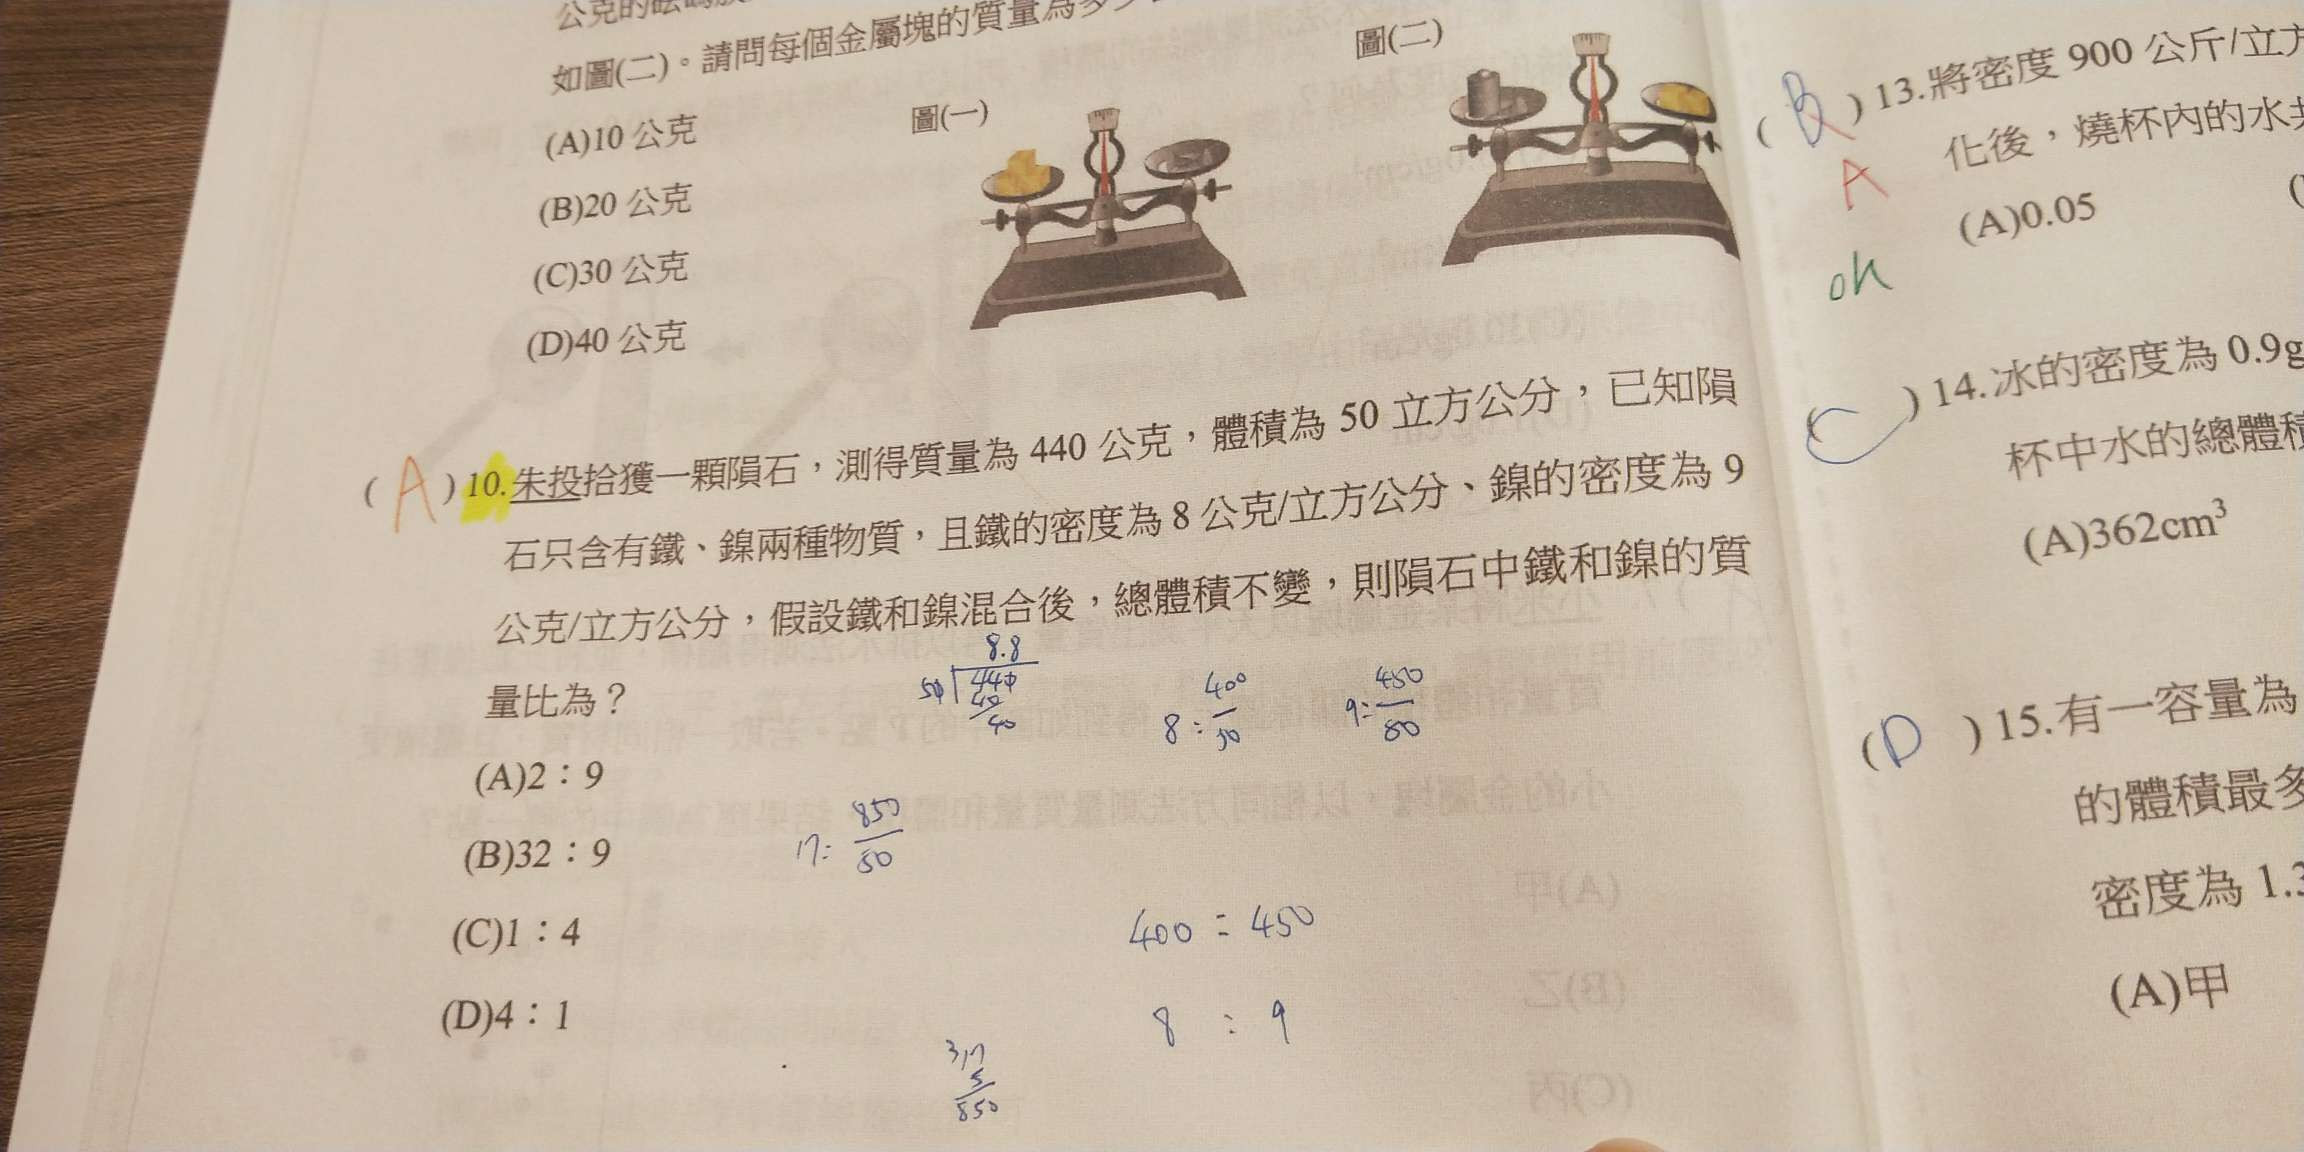 公克的砝碼
如圖(二)。請問每個金屬塊的質量為多少
(A)10 公克
(B)20 公克
(C)30 公克
(D)40 公克
圖(一)
圖(二)
( A )10.朱投拾獲一顆隕石,測得質量為 440 公克,體積為 50 立方公分,已知隕
石只含有鐵、鎳兩種物質,且鐵的密度為 8 公克/立方公分、鎳的密度為 9
公克/立方公分,假設鐵和鎳混合後,總體積不變,則隕石中鐵和鎳的質
量比為?
(A)2:9
(B)32:9
(C)1:4
(D)4:1
8.8
50 440
40
40
8 = 400/50
9 = 450/50
17 = 850/50
400 : 450
8 : 9
317
5
850
( B ) 13.將密度 900 公斤/立方
A
化後,燒杯內的水共
(A)0.05
ok
( C ) 14.冰的密度為 0.9g
杯中水的總體積
(A)362cm³
( D ) 15.有一容量為
的體積最多
密度為 1.3
(A)甲